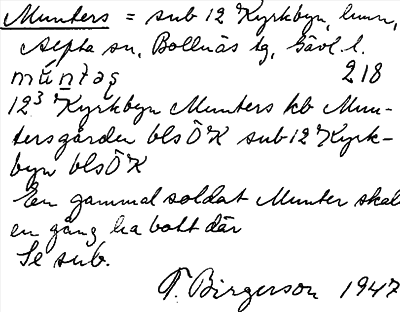 Munters = sub 12 Kyrkbyn, hmn,
Alfta sn, Bollnäs tg, Gävl. l.
mún̠təʂ 218
12³ Kyrkbyn Munters kb Mun-
tersgården bls ÖK sub 12 Kyrk-
byn bls ÖK
En gammal soldat Munter skal
en gång ha bott där
Se sub.
F. Birgerson 1947